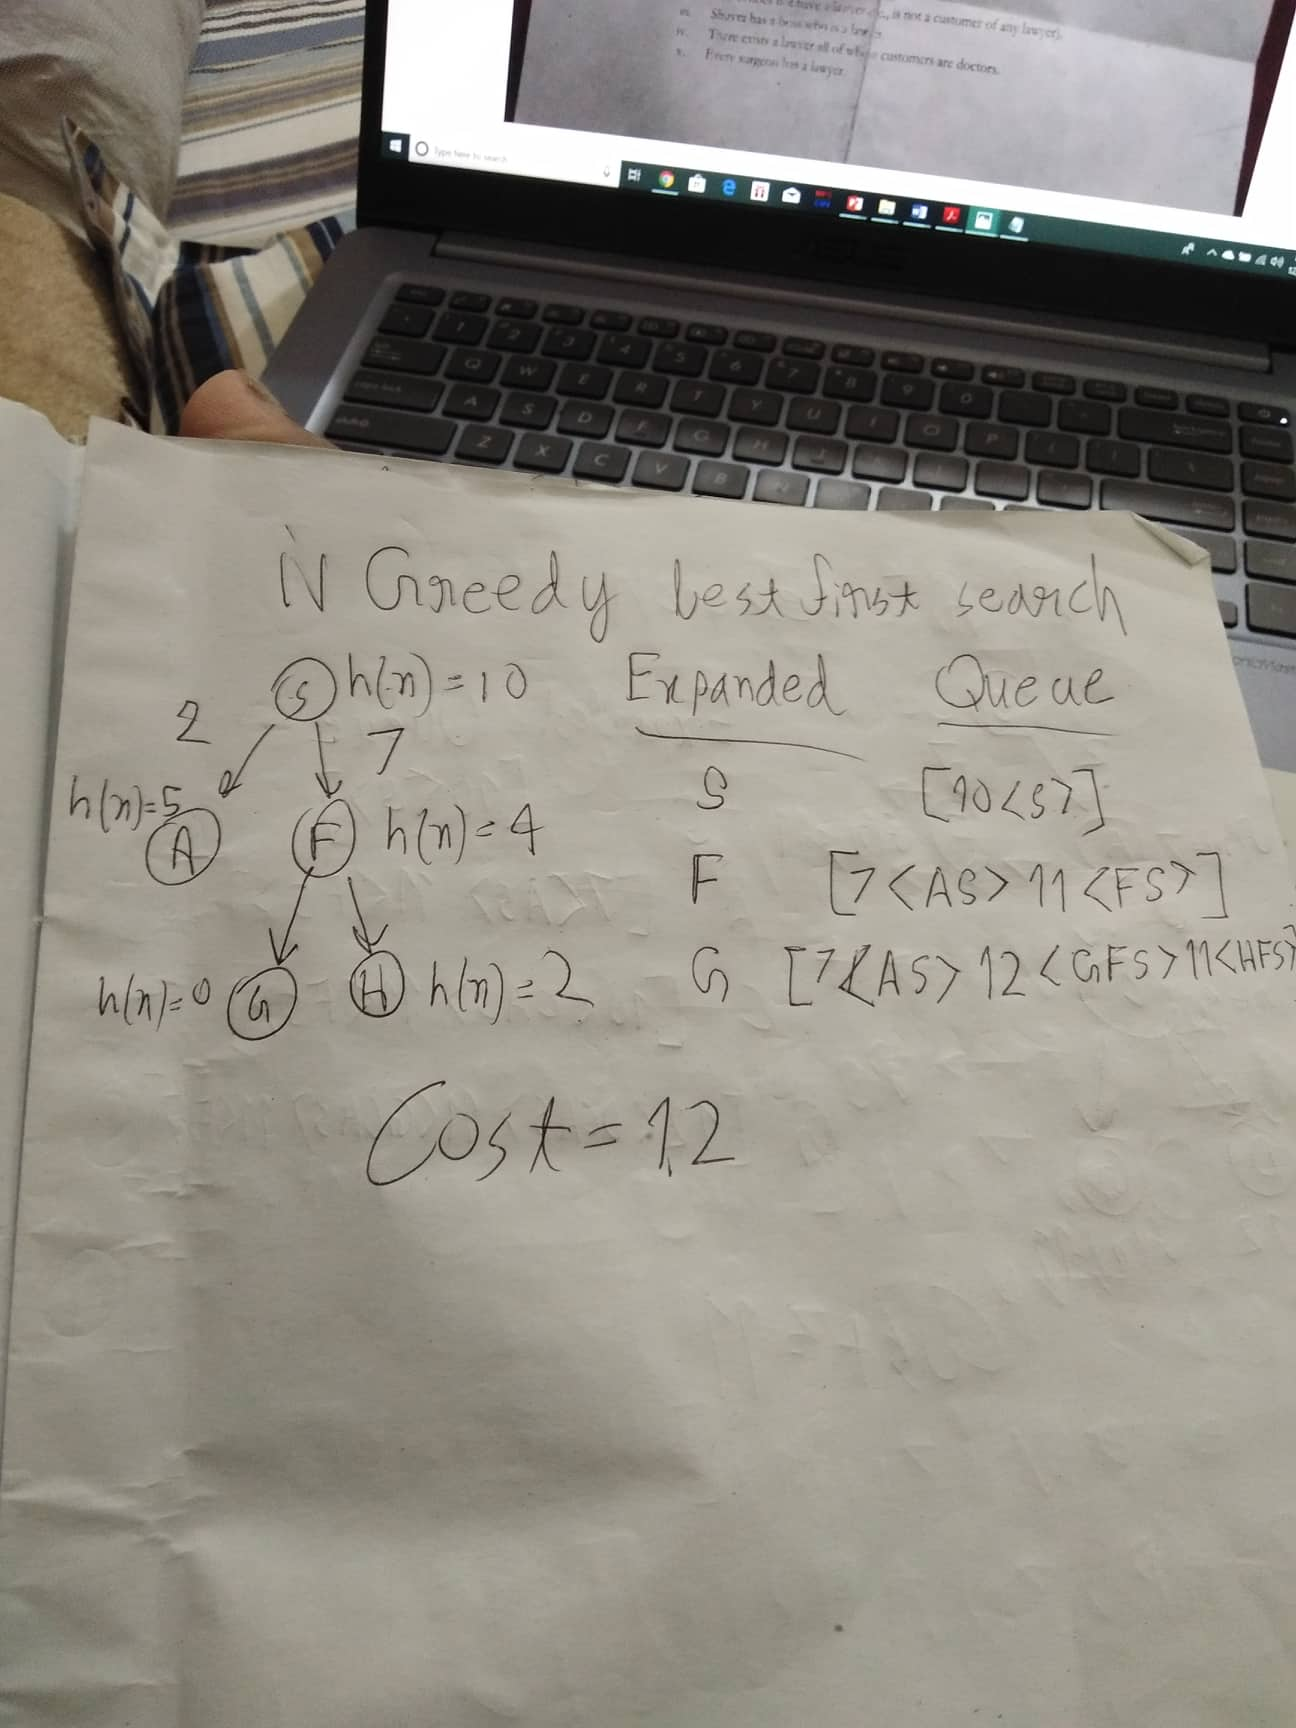 is not a customer of any lawyer).
iii. Shover has a boss who is a lawyer.
iv. There exists a lawyer all of whose customers are doctors.
v. Every surgeon has a lawyer.
Type here to search
iv Greedy best first search
S h(n)=10 Expanded Queue
2 7
S [10<S>]
h(n)=5 A F h(n)=4
F [7<AS> 11<FS>]
h(n)=0 G H h(n)=2
G [7<AS> 12<GFS> 11<HFS>
Cost=12